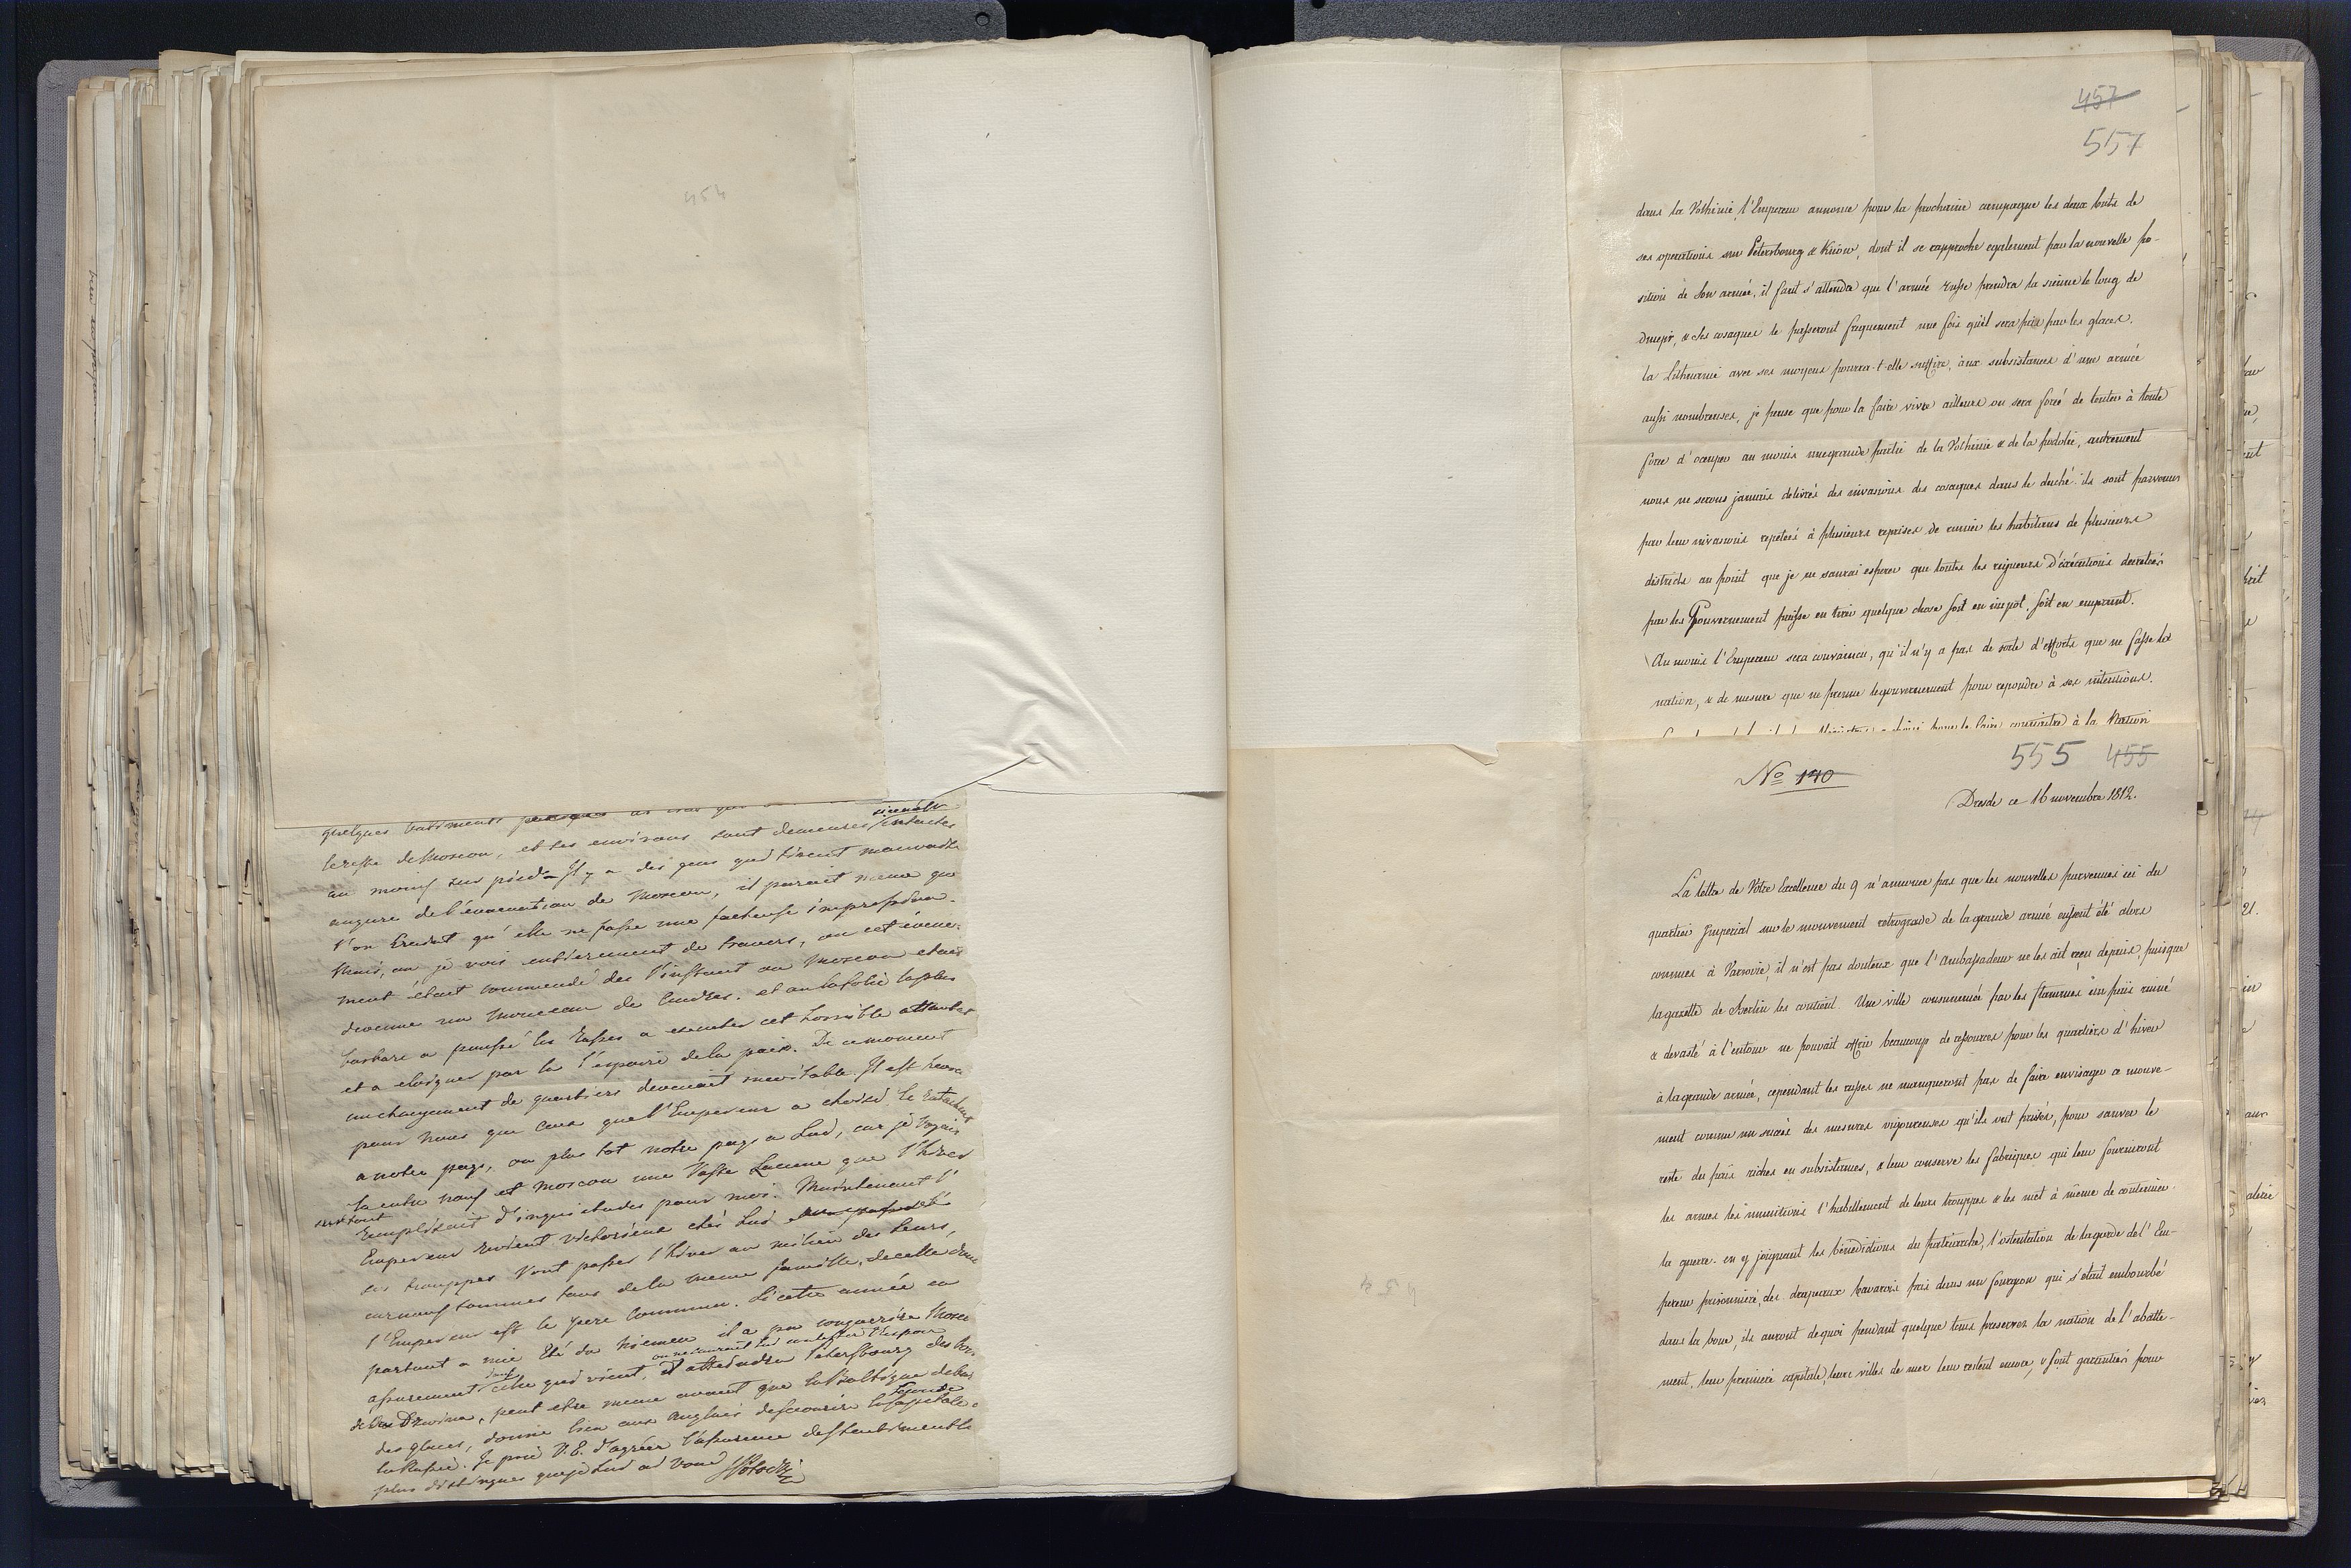 454
quelques batiments
le reste de Moscou, et les environs sont demeurés intactes
au moins sur pied. Il y a des gens qui tirent mauvaise
augure de l'évacuation de Moscou, il parait même que
l'on craint qu'elle ne fasse une facheuse impression.
Mais, ou je vois entièrement de travers, ou cet évène-
ment était commendé des l'instant ou Moscou etait
devenue un monceau de cendres. et ou la folie la plus
barbare a poussé les Russes a executer cet horrible attentat
et a eloigner par la l'espoir de la paix. De ce moment
un changement de quartiers devenait inevitable. Il est heureux
pour nous que ceux que l'Empereur a choisi le
a notre pays, ou plus tot notre pays a Lui, car je voyais
entre nous et Moscou une vaste Lacune que l'hiver
surtout
remplissait d'inquietudes pour moi. Maintenant l'
Empereur revient victorieux chés Lui
ses trouppes vont passer l'hiver au milieu des leurs,
car nous sommes tous de la meme famille, de celle dont
l'Empereur est le pere commun. Si cette année en
partant a mie Eté du Niemen il a pu conquerir Moscou
on ne saurait lui contester l'espoir
assurement celle qui vient, d'atteindre Petersbourg des bords
de la Dzwina, peut etre meme avant que la Baltique debarassée
des glaces, donne lieu aux Anglais de secourir la seconde capitale de
la Russie. Je prie V.E. d'agréer l'assurence des sentiments les
plus distingues que je Lui ai voué
457
557
dans la Volhinie, l'Empereur annonce pour la prochaine campagne les deux buts de
ses operations sur Petersbourg & Kiiow, dont il se rapproche egalement par la nouvelle po-
sition de son armée, il faut s'attendre que l'armée russe prendra la sienne le long de
dniepr, & les cosaques le passeront frequement une fois qu'il sera pris par les glaces.
la Lithuanie avec ses moyens pourra-t-elle suffire, aux subsistances d'une armée
aussi nombreuses, je pense que pour la faire vivre ailleurs on sera forcé de tenter à toute
force d'occuper au moins une grande partie de la Volhinie & de la podolie, autrement
nous ne serons jamais delivrés des invasions des cosaques dans le duché. ils sont parvenus
par leur invasions repetées à plusieurs reprises de ruiner les habitans de plusieurs
districts au point que je ne saurai esperer que toutes les rigueurs d'éxécutions decretées
par les Gouvernement puisse en tirer quelque chose soit en impot, soit en emprunt.
Au moins l'Empereur sera convaincu, qu'il n'y a pas de sorte d'efforts que ne fasse la
nation, & de mesure que ne prenne le gouvernement pour repondre à ses intentions.
pour le faire connoitre à la Nation
555 455
No 140
Dresde ce 16 novembre 1812.
La lettre de Vôtre Excellence du 9 n'annonce pas que les nouvelles parvenues ici du
quartier Imperial sur le mouvement retrograde de la grande armée eussent été alors
connues à Varsovie, il n'est pas douteux que l'Ambassadeur ne les ait reçu depuis, puisque
la gazette de Berlin les contient. Une ville consummée par les flammes un païs ruiné
& devasté à l'entour ne pouvait offrir beaucoup de ressources pour les quartiers d'hiver
à la grande armée, cependant les russes ne manqueront pas de faire envisager ce mouve-
ment comme un succès des mesures vigoureuses qu'ils ont prises, pour sauver le
reste du païs riches en subsistances, & leur conserve les fabriques qui leur fourniront
les armes les munitions l'habillement de leurs trouppes & les met à même de continuer
la guerre. en y joignant les bénédictions du patriarche, l'ostentation de la garde de l'Em-
pereur prisonniere, des drapeaux bavarois pris dans un fourgon qui s'etait embourbé
dans la boue, ils auront de quoi pendant quelque tems preserver la nation de l'abatte-
ment, leur premiere capitale, leurs villes de mer leur restent encore, & sont garanties pour